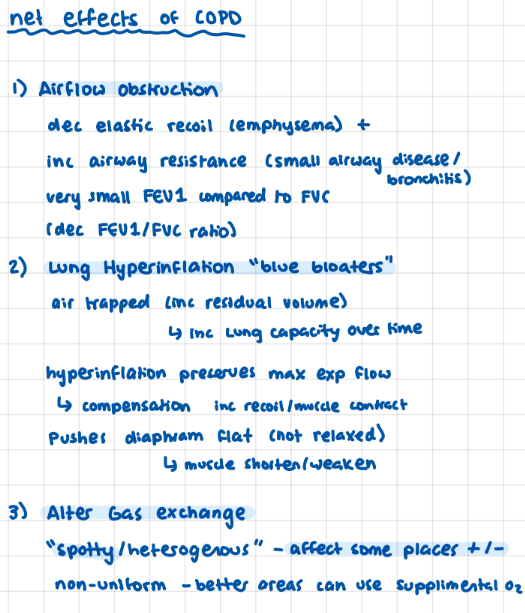 net effects of COPD
1) Airflow obstruction
dec elastic recoil (emphysema) +
inc airway resistance (small airway disease/
bronchitis)
very small FEV1 compared to FVC
(dec FEV1/FVC ratio)
2) Lung Hyperinflation "blue bloaters"
air trapped (inc residual volume)
↳ inc lung capacity over time
hyperinflation preserves max exp flow
↳ compensation inc recoil/muscle contract
Pushes diaphram flat (not relaxed)
↳ muscle shorten/weaken
3) Alter Gas exchange
"spotty/heterogenous" - affect some places +/-
non-uniform - better areas can use supplimental O₂